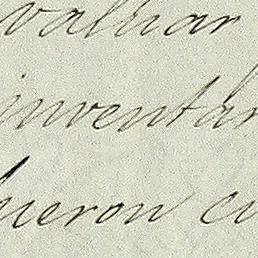 valhar
inventar
ueron cu